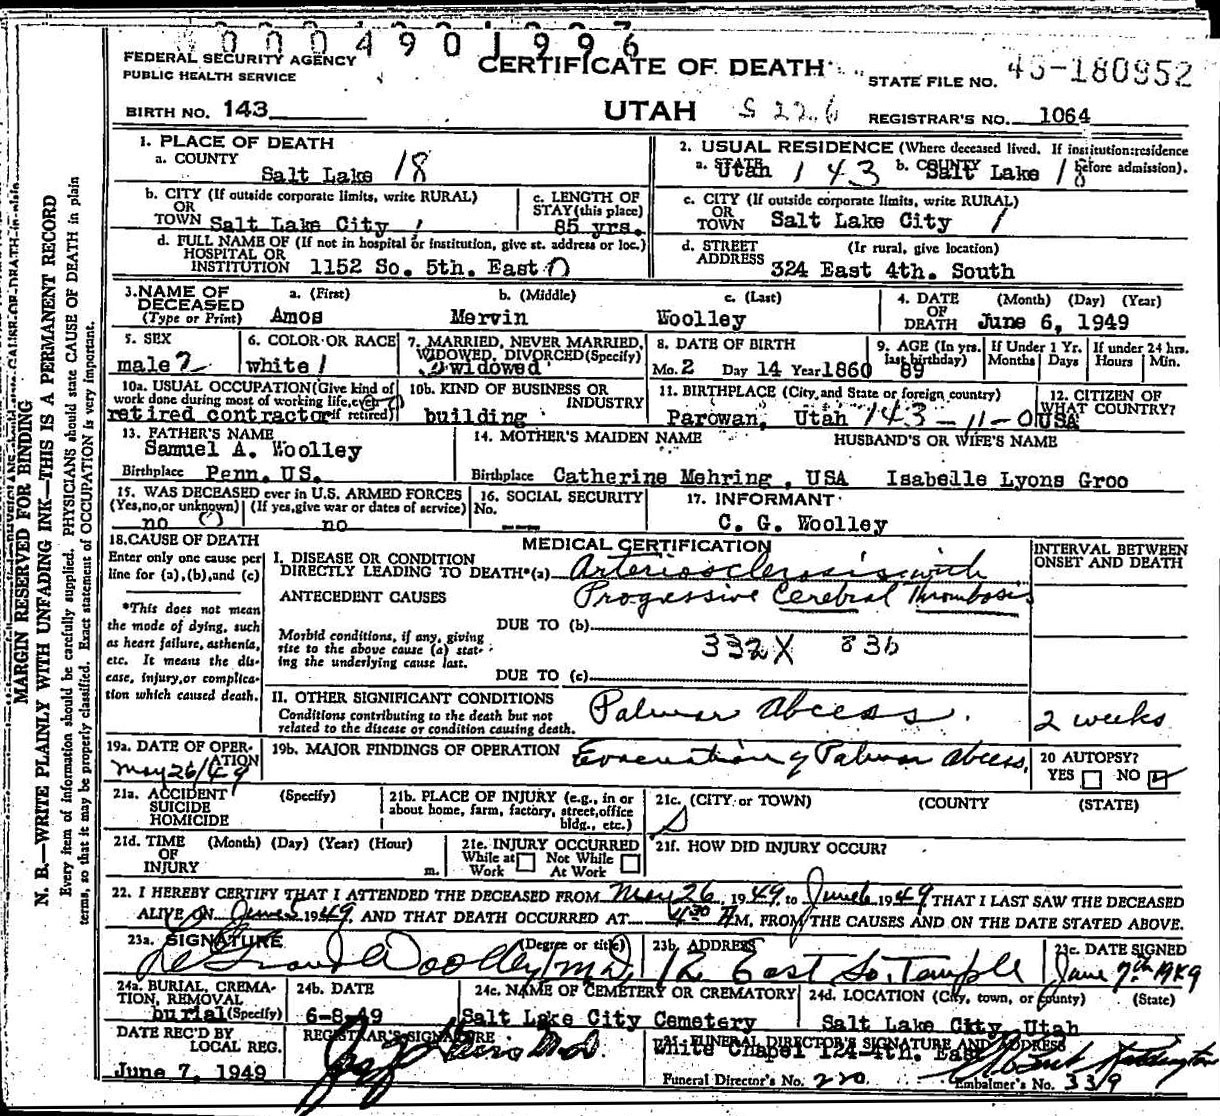 0004901996
FEDERAL SECURITY AGENCY
PUBLIC HEALTH SERVICE
CERTIFICATE OF DEATH
STATE FILE NO. 45-180952
BIRTH NO. 143
UTAH S 226
REGISTRAR'S NO. 1064
1. PLACE OF DEATH
a. COUNTY
Salt Lake 18
2. USUAL RESIDENCE (Where deceased lived. If institution: residence before admission).
a. STATE Utah 143 b. COUNTY Salt Lake 18
b. CITY (If outside corporate limits, write RURAL)
OR
TOWN Salt Lake City 1
c. LENGTH OF
STAY (this place)
85 yrs.
c. CITY (If outside corporate limits, write RURAL)
OR
TOWN Salt Lake City 1
d. FULL NAME OF (If not in hospital or institution, give st. address or loc.)
HOSPITAL OR
INSTITUTION 1152 So. 5th. East 0
d. STREET (If rural, give location)
ADDRESS 324 East 4th. South
3. NAME OF DECEASED
(Type or Print)
a. (First) b. (Middle) c. (Last)
Amos Mervin Woolley
4. DATE OF DEATH (Month) (Day) (Year)
June 6, 1949
5. SEX
male 2
6. COLOR OR RACE
white 1
7. MARRIED, NEVER MARRIED,
WIDOWED, DIVORCED (Specify)
widowed
8. DATE OF BIRTH
Mo. 2 Day 14 Year 1860
9. AGE (In yrs. last birthday)
89
If Under 1 Yr.
Months Days
If under 24 hrs.
Hours Min.
10a. USUAL OCCUPATION (Give kind of
work done during most of working life, even
if retired)
retired contractor
10b. KIND OF BUSINESS OR
INDUSTRY
building
11. BIRTHPLACE (City, and State or foreign country)
Parowan, Utah 143-11-0
12. CITIZEN OF
WHAT COUNTRY?
USA
13. FATHER'S NAME
Samuel A. Woolley
Birthplace Penn. US.
14. MOTHER'S MAIDEN NAME
Birthplace Catherine Mehring, USA
HUSBAND'S OR WIFE'S NAME
Isabelle Lyons Groo
15. WAS DECEASED ever in U.S. ARMED FORCES
(Yes, no, or unknown) (If yes, give war or dates of service)
no no
16. SOCIAL SECURITY
No. --
17. INFORMANT
C. G. Woolley
18. CAUSE OF DEATH
Enter only one cause per
line for (a), (b), and (c)
*This does not mean
the mode of dying, such
as heart failure, asthenia,
etc. It means the dis-
ease, injury, or complica-
tion which caused death.
MEDICAL CERTIFICATION
INTERVAL BETWEEN
ONSET AND DEATH
I. DISEASE OR CONDITION
DIRECTLY LEADING TO DEATH*(a) Arteriosclerosis with
ANTECEDENT CAUSES Progressive Cerebral Thrombosis
DUE TO (b)
Morbid conditions, if any, giving
rise to the above cause (a) stat-
ing the underlying cause last.
332X 836
DUE TO (c)
II. OTHER SIGNIFICANT CONDITIONS
Conditions contributing to the death but not
related to the disease or condition causing death.
Palmar abcess. 2 weeks
19a. DATE OF OPER-
ATION
May 26/49
19b. MAJOR FINDINGS OF OPERATION
Evacuation of Palmar abcess.
20 AUTOPSY?
YES NO
21a. ACCIDENT (Specify)
SUICIDE
HOMICIDE
21b. PLACE OF INJURY (e.g., in or
about home, farm, factory, street, office
bldg., etc.)
21c. (CITY or TOWN) (COUNTY) (STATE)
S
21d. TIME (Month) (Day) (Year) (Hour)
OF
INJURY m.
21e. INJURY OCCURRED
While at Work Not While At Work
21f. HOW DID INJURY OCCUR?
22. I HEREBY CERTIFY THAT I ATTENDED THE DECEASED FROM May 26, 1949, to June 6 1949 THAT I LAST SAW THE DECEASED
ALIVE ON June 5 1949, AND THAT DEATH OCCURRED AT 4:30 A M., FROM THE CAUSES AND ON THE DATE STATED ABOVE.
23a. SIGNATURE (Degree or title)
LeGrand Woolley M.D.
23b. ADDRESS
12 East So. Temple
23c. DATE SIGNED
June 7th 1949
24a. BURIAL, CREMA-
TION, REMOVAL
(Specify)
burial
24b. DATE
6-8-49
24c. NAME OF CEMETERY OR CREMATORY
Salt Lake City Cemetery
24d. LOCATION (City, town, or county) (State)
Salt Lake City, Utah
DATE REC'D BY
LOCAL REG.
June 7, 1949
REGISTRAR'S SIGNATURE
25. FUNERAL DIRECTOR'S SIGNATURE AND ADDRESS
White Chapel 124-4th. East
Funeral Director's No. 220 Embalmer's No. 339
MARGIN RESERVED FOR BINDING
N. B.—WRITE PLAINLY WITH UNFADING INK—THIS IS A PERMANENT RECORD
Every item of information should be carefully supplied. PHYSICIANS should state CAUSE OF DEATH in plain
terms, so that it may be properly classified. Exact statement of OCCUPATION is very important.